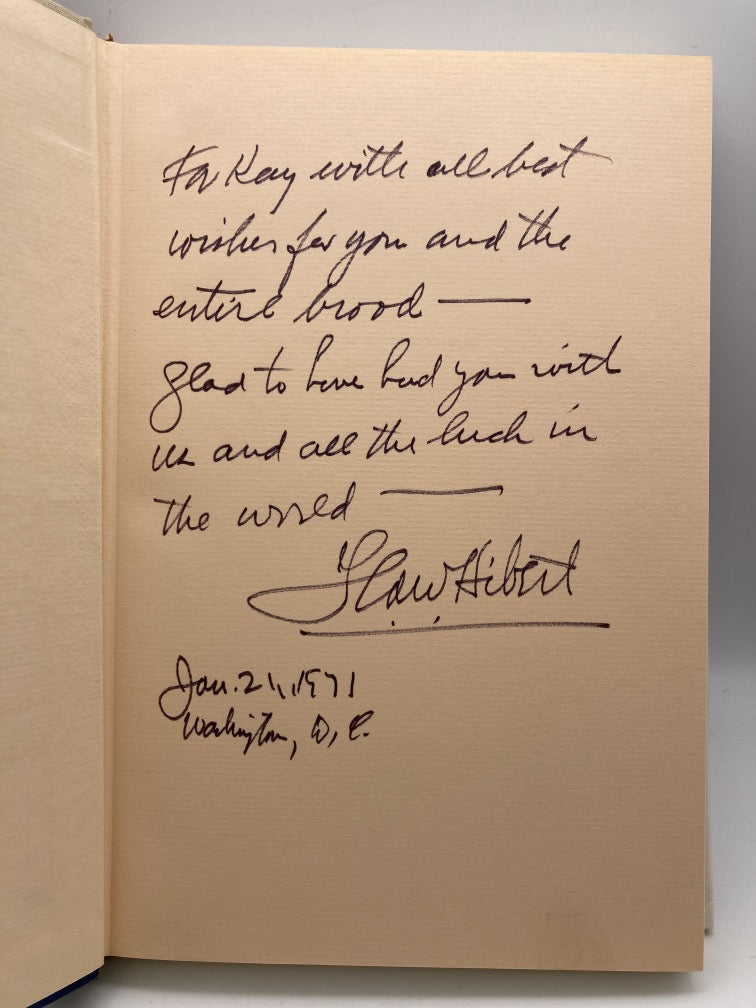 For Kay with all best
wishes for you and the
entire brood —
glad to have had you with
us and all the luck in
the world —
F. Edw. Hébert
Jan. 21, 1971
Washington, D.C.